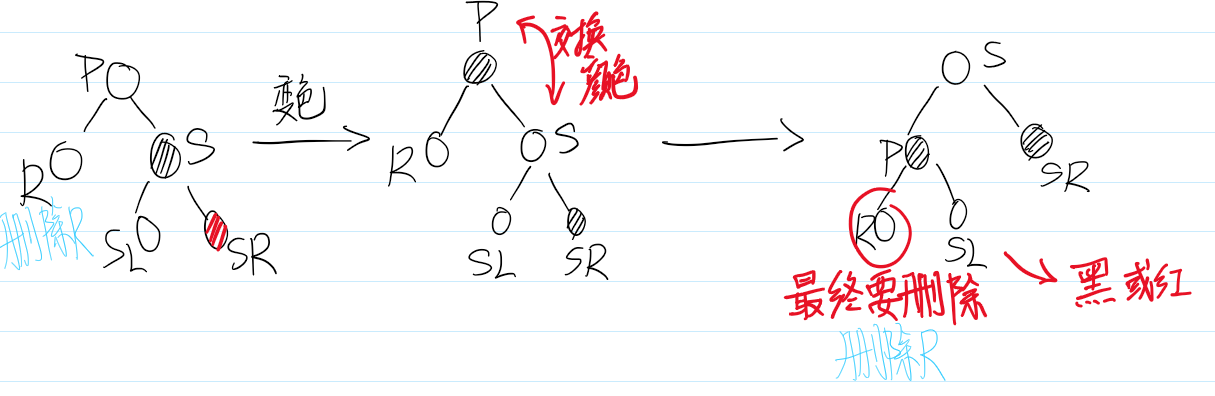 P
S
R
删除R
SL
SR
变色
P
交换
颜色
R
S
SL
SR
S
P
SR
R
SL
最终要删除
黑或红
删除R